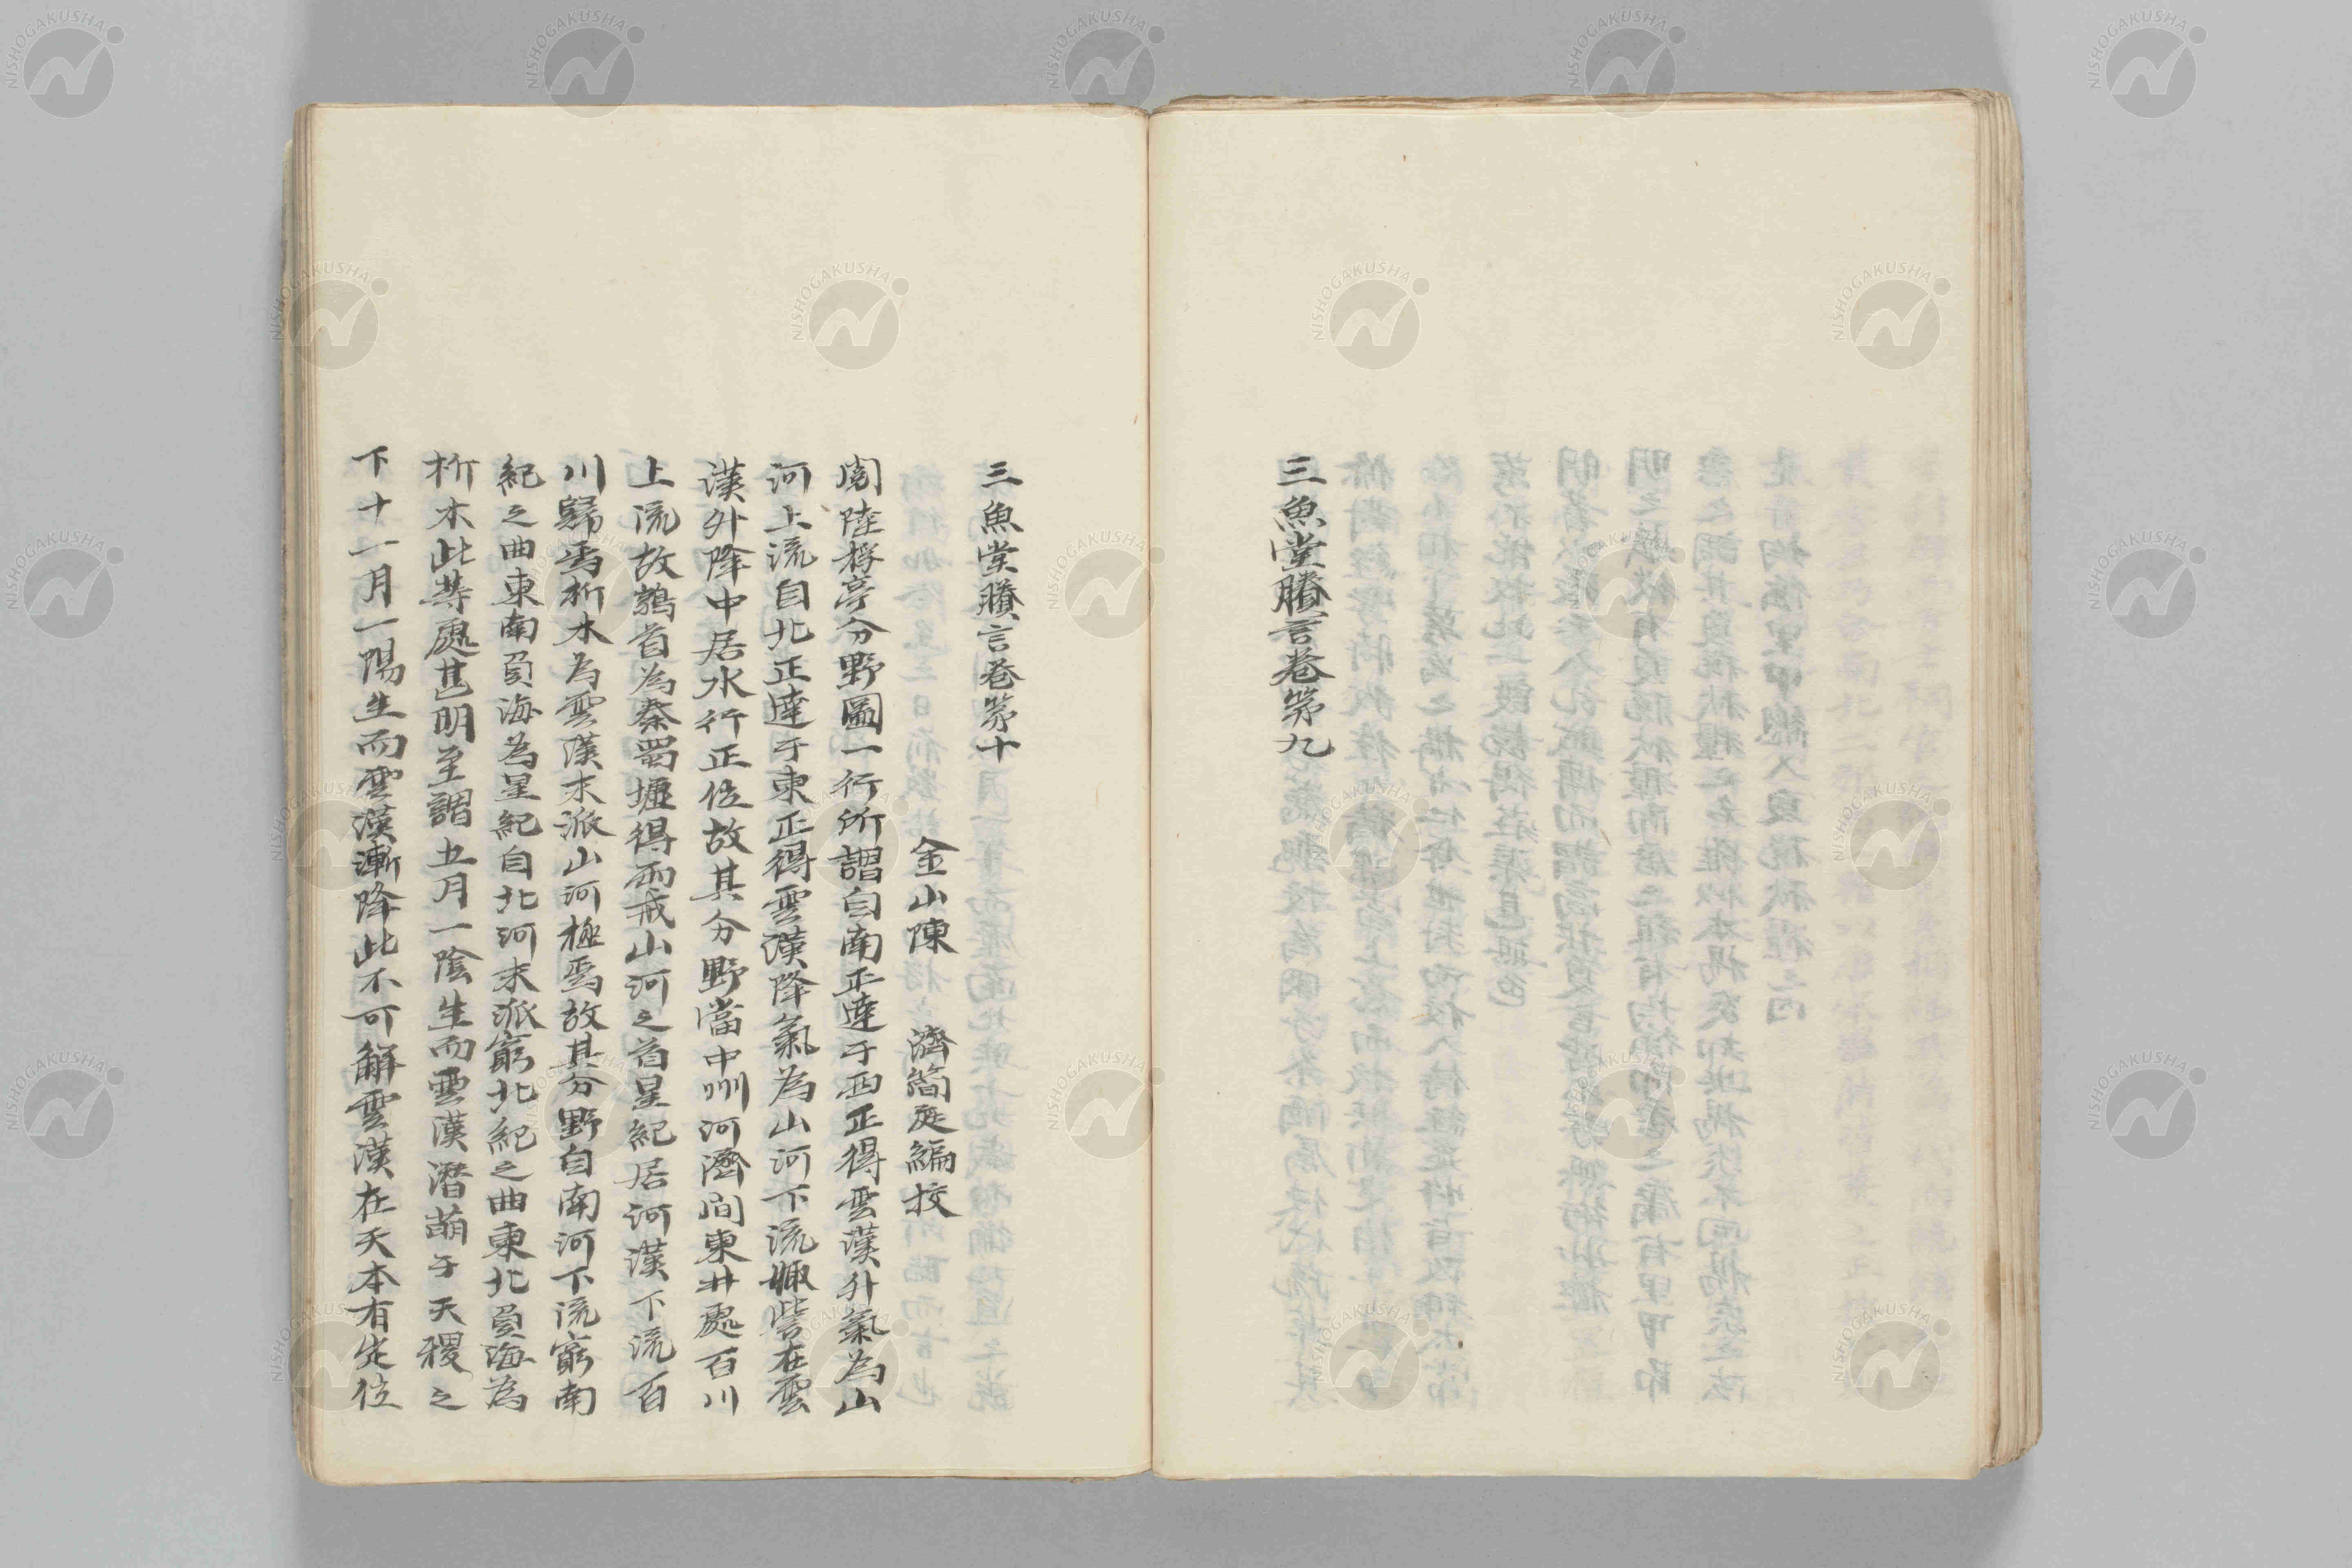 三魚堂賸言卷第九
三魚堂賸言卷第十
金山陳　濟簡庭編挍
閲陸桴亭分野圖一行所謂自南正達于西正得雲漢升氣為山
河上流自北正達于東正得雲漢降氣為山河下流娵訾在雲
漢外降中居水行正位故其分野當中州河濟間東井處百川
上流故鶉首為秦蜀墟得兩戒山河之首星紀居河漢下流百
川歸焉析木為雲漢末派山河極焉故其分野自南河下流窮南
紀之曲東南負海為星紀自北河末派窮北紀之曲東北負海為
析木此等處甚明至謂五月一陰生而雲漢潛萌于天稷之
下十一月一陽生而雲漢漸降此不可解雲漢在天本有定位
NISHOGAKUSHA